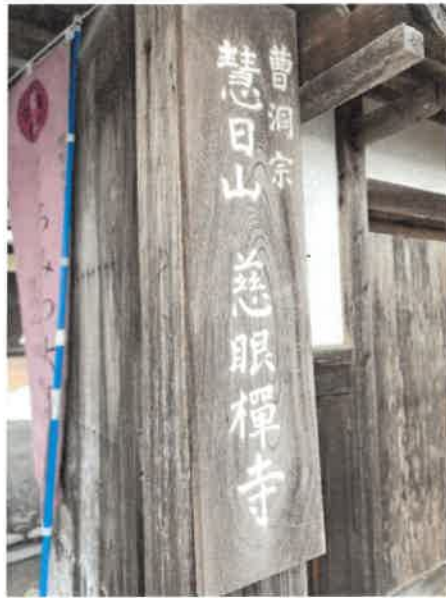 曹洞宗
慧日山　慈眼禅寺